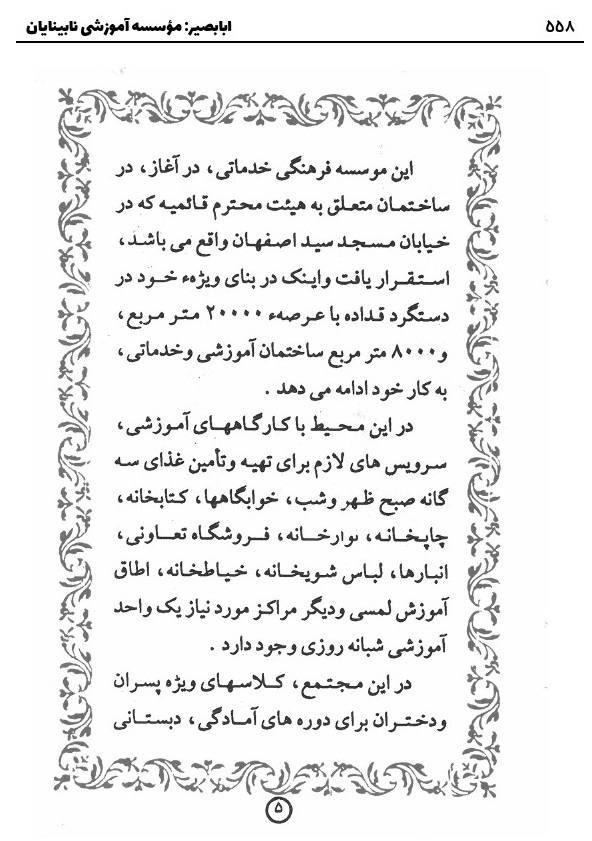 ۵۵۸
ابابصیر: مؤسسه آموزشی نابینایان
این موسسه فرهنگی خدماتی، در آغاز، در
ساختمان متعلق به هیئت محترم قائمیه که در
خیابان مسجد سید اصفهان واقع می باشد،
استقرار یافت واینک در بنای ویژهء خود در
دستگرد قداده با عرصهء ۲۰۰۰۰ متر مربع،
و۸۰۰۰ متر مربع ساختمان آموزشی وخدماتی،
به کار خود ادامه می دهد .
در این محیط با کارگاههای آموزشی،
سرویس های لازم برای تهیه وتأمین غذای سه
گانه صبح ظهر وشب، خوابگاهها، کتابخانه،
چاپخانه، نوارخانه، فروشگاه تعاونی،
انبارها، لباس شویخانه، خیاطخانه، اطاق
آموزش لمسی ودیگر مراکز مورد نیاز یک واحد
آموزشی شبانه روزی وجود دارد .
در این مجتمع، کلاسهای ویژه پسران
ودختران برای دوره های آمادگی، دبستانی
۵